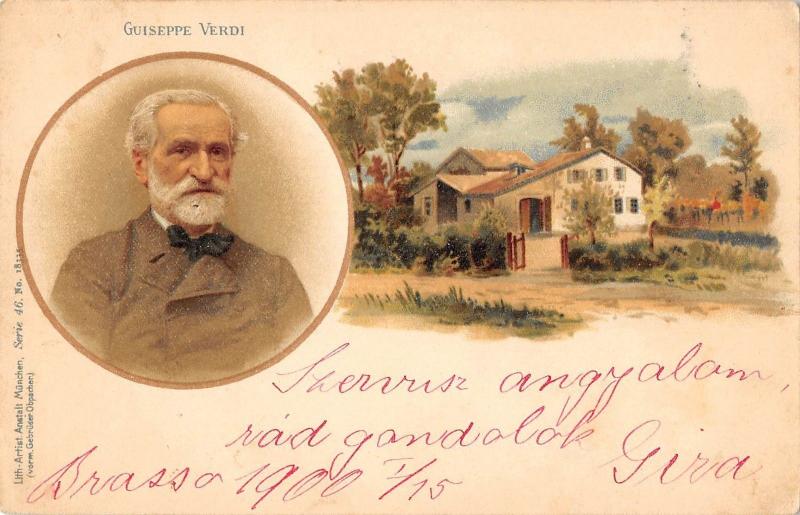 GUISEPPE VERDI
Lith.-Artist. Anstalt München, Serie 46. No. 18335
(vorm. Gebrüder Obpacher)
Szervusz angyalom,
rád gondolok
Brasso 1900 I/15 Giza